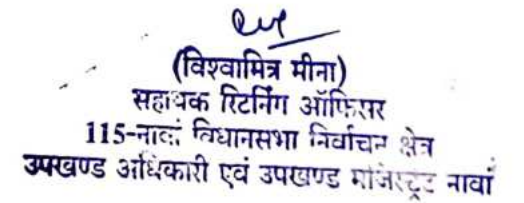 (विश्वामित्र मीना)
सहायक रिटर्निंग ऑफिसर
115-नावां विधानसभा निर्वाचन क्षेत्र
उपखण्ड अधिकारी एवं उपखण्ड मजिस्ट्रेट नावां